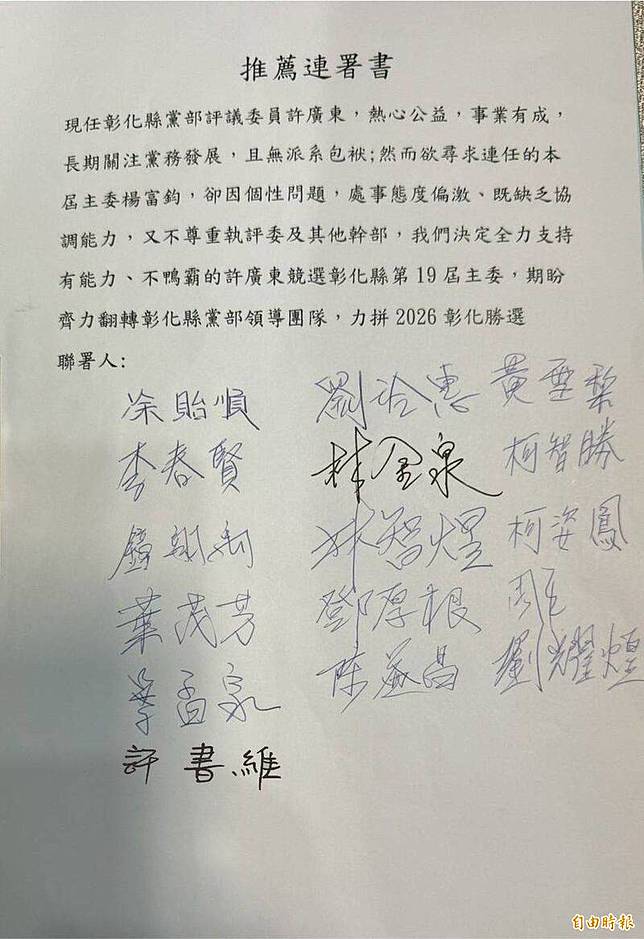 推薦連署書
現任彰化縣黨部評議委員許廣東，熱心公益，事業有成，
長期關注黨務發展，且無派系包袱;然而欲尋求連任的本
屆主委楊富鈞，卻因個性問題，處事態度偏激、既缺乏協
調能力，又不尊重執評委及其他幹部，我們決定全力支持
有能力、不鴨霸的許廣東競選彰化縣第19屆主委，期盼
齊力翻轉彰化縣黨部領導團隊，力拼2026彰化勝選
聯署人:
凃貽順
李春賢
葉茂芳
許書維
林金泉
林智煌
鄧厚根
柯智勝
柯姿鳳
劉耀煌
自由時報